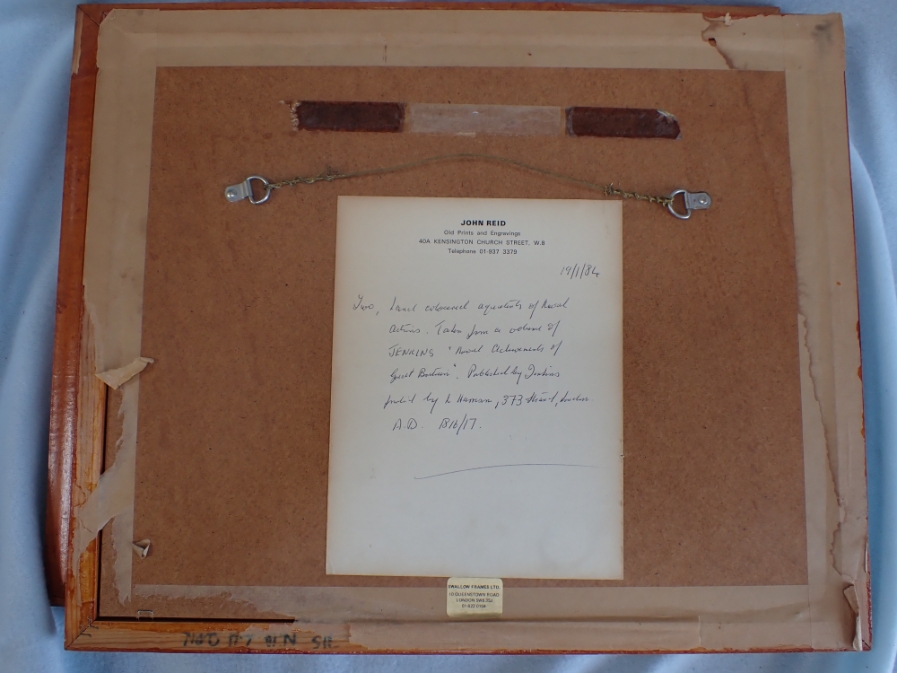 JOHN REID
Old Prints and Engravings
40A KENSINGTON CHURCH STREET, W.8
Telephone 01-937 3379
19/1/84
Two, hand coloured aquatints of Naval
Actions. Taken from a volume of
JENKINS "Naval Achievements of
Great Britain". Published by Jenkins
by L Harrison, 373 Strand, London
A.D. 1816/17.
SWALLOW FRAMES LTD
QUEENSTOWN ROAD
LONDON